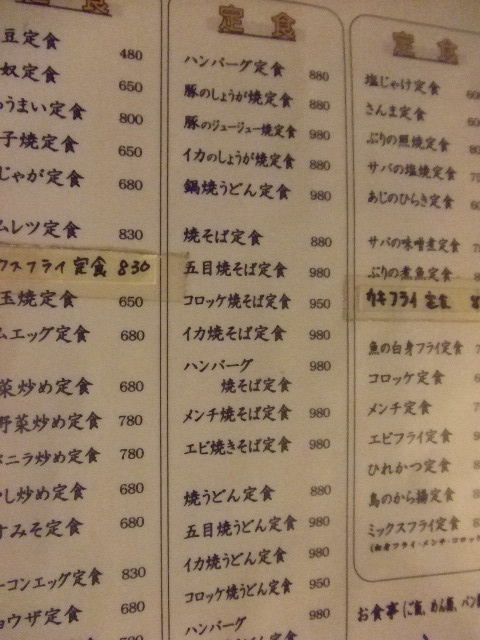 定食
豆定食 480
奴定食 650
うまい定食 800
子焼定食 650
じゃが定食 680
ムレツ定食 830
クスフライ定食 830
玉焼定食 650
ムエッグ定食 680
菜炒め定食 680
野菜炒め定食 780
ニラ炒め定食 780
し炒め定食 680
すみそ定食 680
ーコンエッグ定食 830
ョウザ定食 680
定食
ハンバーグ定食 880
豚のしょうが焼定食 880
豚のジュージュー焼定食 980
イカのしょうが焼定食 880
鍋焼うどん定食 980
焼そば定食 880
五目焼そば定食 980
コロッケ焼そば定食 950
イカ焼そば定食 980
ハンバーグ 980
焼そば定食
メンチ焼そば定食 980
エビ焼きそば定食 980
焼うどん定食 880
五目焼うどん定食 980
イカ焼うどん定食 980
コロッケ焼うどん定食 950
ハンバーグ 980
焼うどん定食
定食
塩じゃけ定食
さんま定食
ぶりの照焼定食
サバの塩焼定食
あじのひらき定食
サバの味噌煮定食
ぶりの煮魚定食
カキフライ定食
魚の白身フライ定食
コロッケ定食
メンチ定食
エビフライ定食
ひれかつ定食
鳥のから揚定食
ミックスフライ定食
(白身フライ・メンチ・コロッケ
お食事(ご飯、めん類、パン